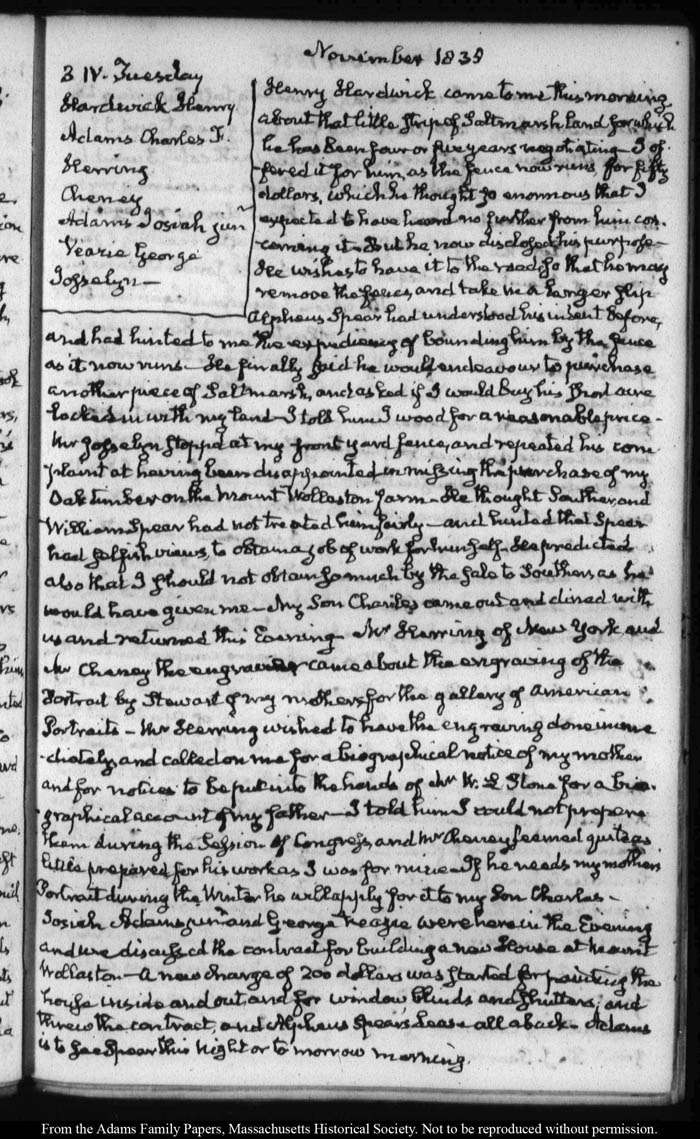 November 1838
3 IV. Tuesday
Hardwick Henry
Adams Charles F.
Herring
Cheney
Adams Josiah jun.r
Veazie George
Josselyn—
Henry Hardwick came to me this morning
about that little strip of Saltmarsh land for which
he has been four or five years negotiating— I of-
fered it for him, as the fence now runs, for fifty
dollars, which he thought so enormous that I
expected to have heard no further from him con-
cerning it— But he now disclosed his purpose—
He wishes to have it to the road so that he may
remove the fence, and take in a larger slip
Alpheus Spear had understood his intent before,
and had hinted to me the expediency of bounding him by the fence
as it now runs— He finally said he would endeavour to purchase
another piece of Saltmarsh, and asked if I would buy his acre
locked in with my land— I told him I wood for a reasonable price—
Mr Josselyn stopp'd at my front yard fence, and repeated his com-
plaint at having been disappointed in missing the purchase of my
Oak timber on the Mount Wollaston farm— He thought Souther, and
William Spear had not treated him fairly— and hinted that Spear
had selfish views, to obtain a job of work for himself— He predicted
also that I should not obtain so much by the sale to Souther as he
would have given me— My Son Charles came out and dined with
us and returned this Evening— Mr Herring of New York and
Mr Cheney the engraver came about the engraving of the
Portrait by Stewart of my mother, for the gallery of American
Portraits— Mr Herring wished to have the engraving done imme-
diately, and called on me for a biographical notice of my mother
and for notices to be put into the hands of Mr W. L Stone for a bio-
graphical account of my father— I told him I could not prepare
them during the Session of Congress, and Mr Cheney seemed quite as
little prepared for his work as I was for mine— If he needs my mother's
Portrait during the Winter he will apply for it to my Son Charles—
Josiah Adams junr and George Veazie were here in the Evening
and we discussed the contract for building a new House at Mount
Wollaston— A new charge of 200 dollars was started for painting the
house inside and out, and for window blinds and shutters; and
threw the contract, and Alpheus Spear's Lease all aback— Adams
is to see Spear this Night or to morrow morning.
From the Adams Family Papers, Massachusetts Historical Society. Not to be reproduced without permission.